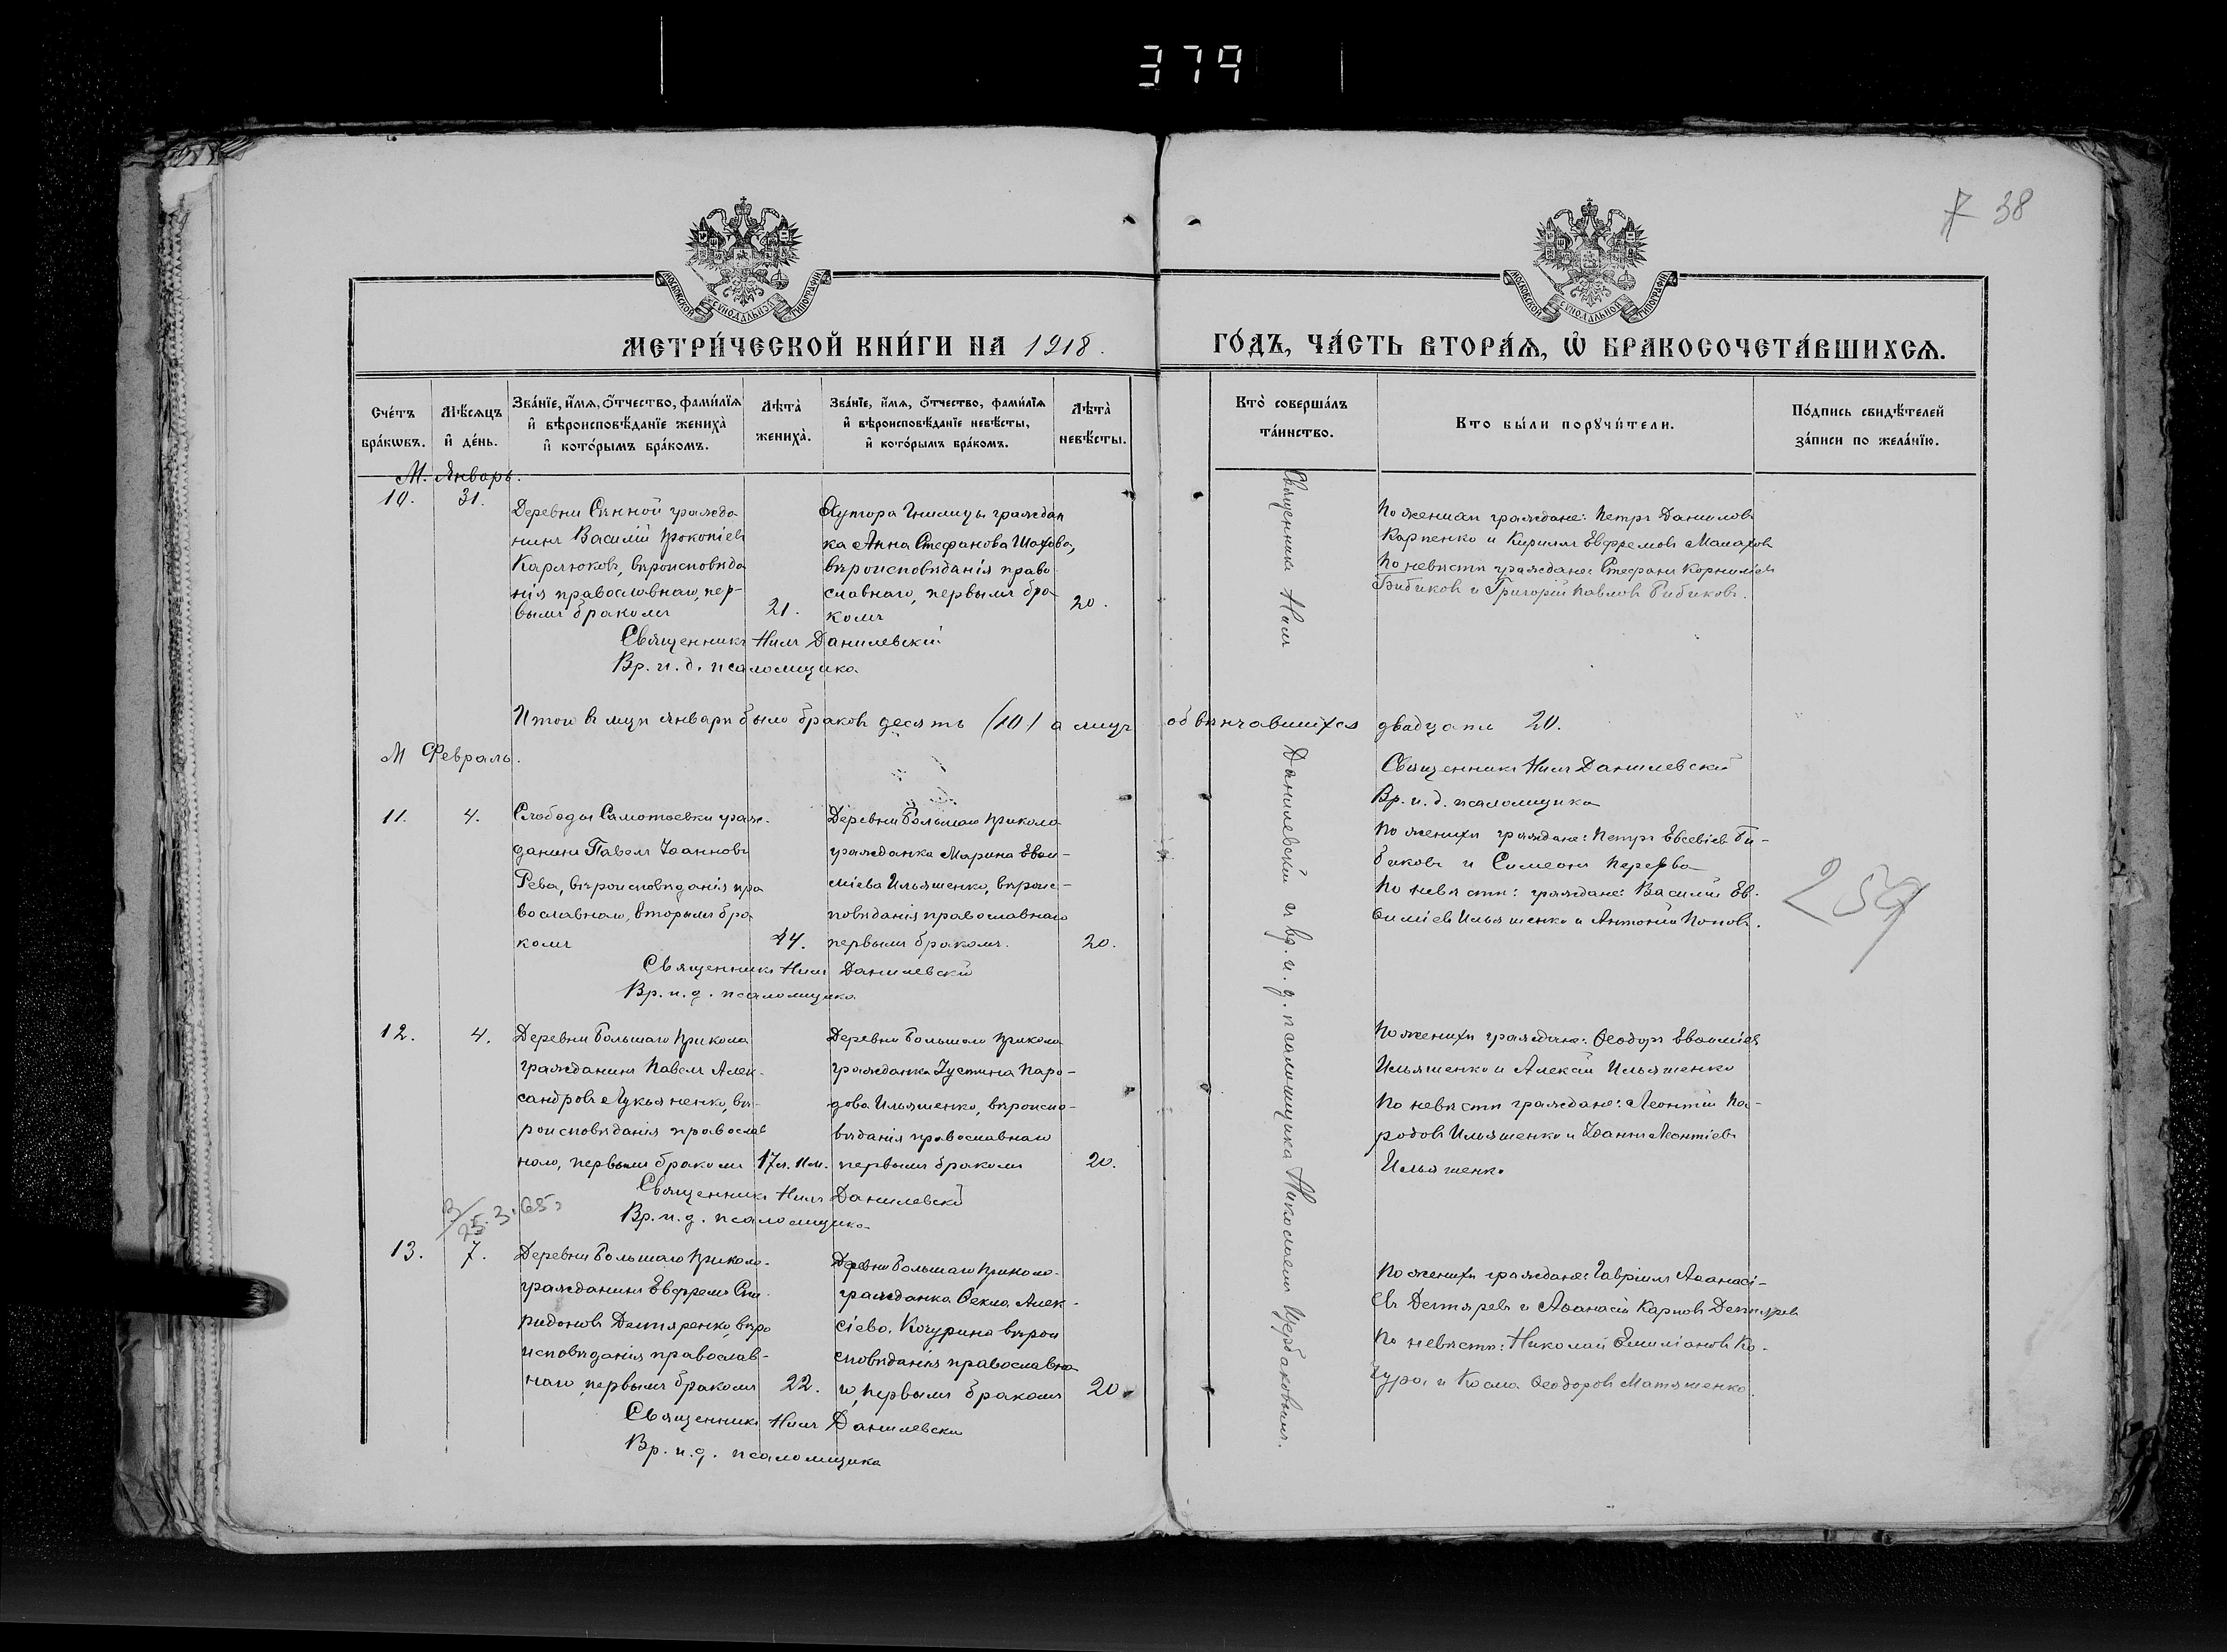 379
38
МОСКОВСКОЙ СѴНОДАЛЬНОЙ ТИПОГРАФІИ
МОСКОВСКОЙ СѴНОДАЛЬНОЙ ТИПОГРАФІИ
МЕТРИ́ЧЕСКОЙ КНИ́ГИ НА 1918.
ГО́ДЪ, ЧА́СТЬ ВТОРА́Ѧ, Ѡ҆ БРАКОСОЧЕТА́ВШИХСѦ.
Сче́тъ бра́кѡвъ.
Мѣ́сѧцъ и҆ де́нь.
Зва́нїе, и҆́мѧ, ѻ҆́тчество, фами́лїѧ и҆ вѣроисповѣ́данїе жениха̀ и҆ кото́рымъ бра́комъ.
Лѣта̀ жениха̀.
Зва́нїе, и҆́мѧ, ѻ҆́тчество, фами́лїѧ и҆ вѣроисповѣ́данїе невѣ́сты, и҆ кото́рымъ бра́комъ.
Лѣта̀ невѣ́сты.
Кто̀ соверша́лъ та́инство.
Кто бы́ли порꙋчи́тели.
По́дпись свидѣ́телей за́писи по жела́нїю.
М. Январь.
10. 31.
Деревни Сѣнной гражда
нинъ Василій Прокопіевъ
Карлюковъ, вѣроисповѣда
нія православнаго, пер-
вымъ бракомъ 21.
Хутора граждан
ка Анна Стефанова Шахова,
вѣроисповѣданія право
славнаго, первымъ бра
комъ 20.
По женихѣ граждане: Петръ Даниловъ
Карпенко и Кириллъ Евфремовъ Малаховъ
По невѣстѣ граждане: Стефанъ Корниліевъ
Бибиковъ и Григорій Павловъ Бибиковъ.
Священникъ Нилъ Данилевскій
Вр. и. д. псаломщика
Итого въ мцѣ январѣ было браковъ десять (10) а лицъ обвѣнчавшихся двадцать 20.
Священникъ Нилъ Данилевскій
Вр. и. д. псаломщика
М Февраль.
11. 4.
Слободы Самотоевки граж-
данинъ Павелъ Іоанновъ
Рева, вѣроисповѣданія пра
вославнаго, вторымъ бра
комъ 44.
Деревни Большаго Прикола
гражданка Марина Евѳи-
міева Ильяшенко, вѣроис-
повѣданія православнаго
первымъ бракомъ. 20.
По женихѣ граждане: Петръ Евсевіевъ Би-
биковъ и Симеонъ Перерва
По невѣстѣ: граждане: Василій Ев-
ѳиміевъ Ильяшенко и Антоній Поповъ.
259
Священникъ Нилъ Данилевскій
Вр. и. д. псаломщика
12. 4.
Деревни Большаго Прикола
гражданинъ Павелъ Алек-
сандровъ Лукьяненко, вѣ-
роисповѣданія православ
наго, первымъ бракомъ 17 л. 11 м.
Деревни Большаго Прикола
гражданка Іустина Паро-
дова Ильяшенко, вѣроиспо-
вѣданія православнаго
первымъ бракомъ 20.
По женихѣ граждане: Ѳеодоръ Евѳиміевъ
Ильяшенко и Алексій Ильяшенко
По невѣстѣ граждане: Леонтій Па-
родовъ Ильяшенко и Іоаннъ Леонтіевъ
Ильяшенко
Священникъ Нилъ Данилевскій
Вр. и. д. псаломщика
25.3.65
13. 7.
Деревни Большаго Прикола
гражданинъ Евфремъ Спи
ридоновъ Дегтяренко, вѣро
исповѣданія православ-
наго, первымъ бракомъ 22.
Деревни Большаго Прикола
гражданка Ѳекла Алек-
сіева Кочурина вѣрои
сповѣданія православна
го, первымъ бракомъ 20.
По женихѣ граждане: Гавріилъ Аѳанасі-
евъ Дегтяревъ и Аѳанасій Карповъ Дегтяревъ
По невѣстѣ: Николай Емиліановъ Ко-
чура и Косма Ѳеодоровъ Матяшенко.
Священникъ Нилъ Данилевскій
Вр. и. д. псаломщика
Священникъ Нилъ Данилевскій и вр. и. д. псаломщика Николаемъ Щербаковымъ.